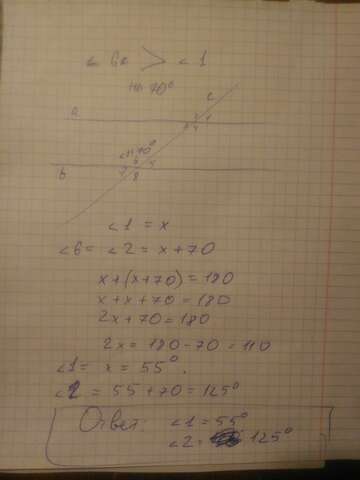 ∠ 6 > ∠ 1
на 70°
c
a
3 4
∠1+70°
6 5
7 8
b
∠1 = x
∠6 = ∠2 = x+70
x+(x+70)=180
x+x+70=180
2x+70=180
2x=180-70=110
∠1= x = 55°.
∠2 = 55+70=125°
Ответ: ∠1=55°
∠2= 125°